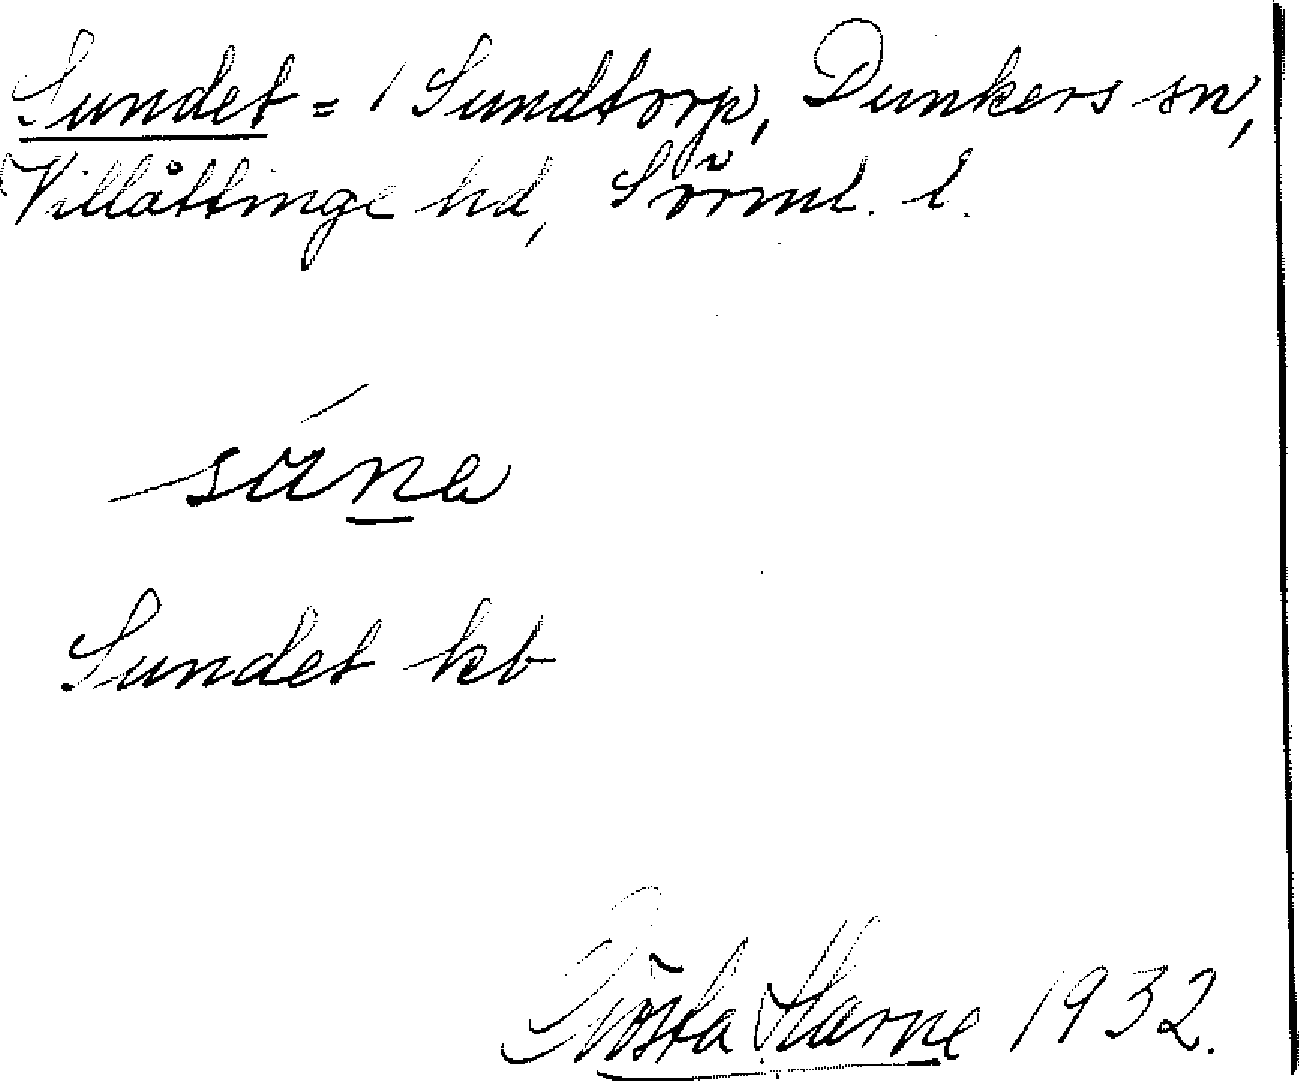 Sundet = / Sundtorp, Dunkers sn,
Villåttinge hd, Sörml. l.
Sundet kb
Gösta Harne 1932.